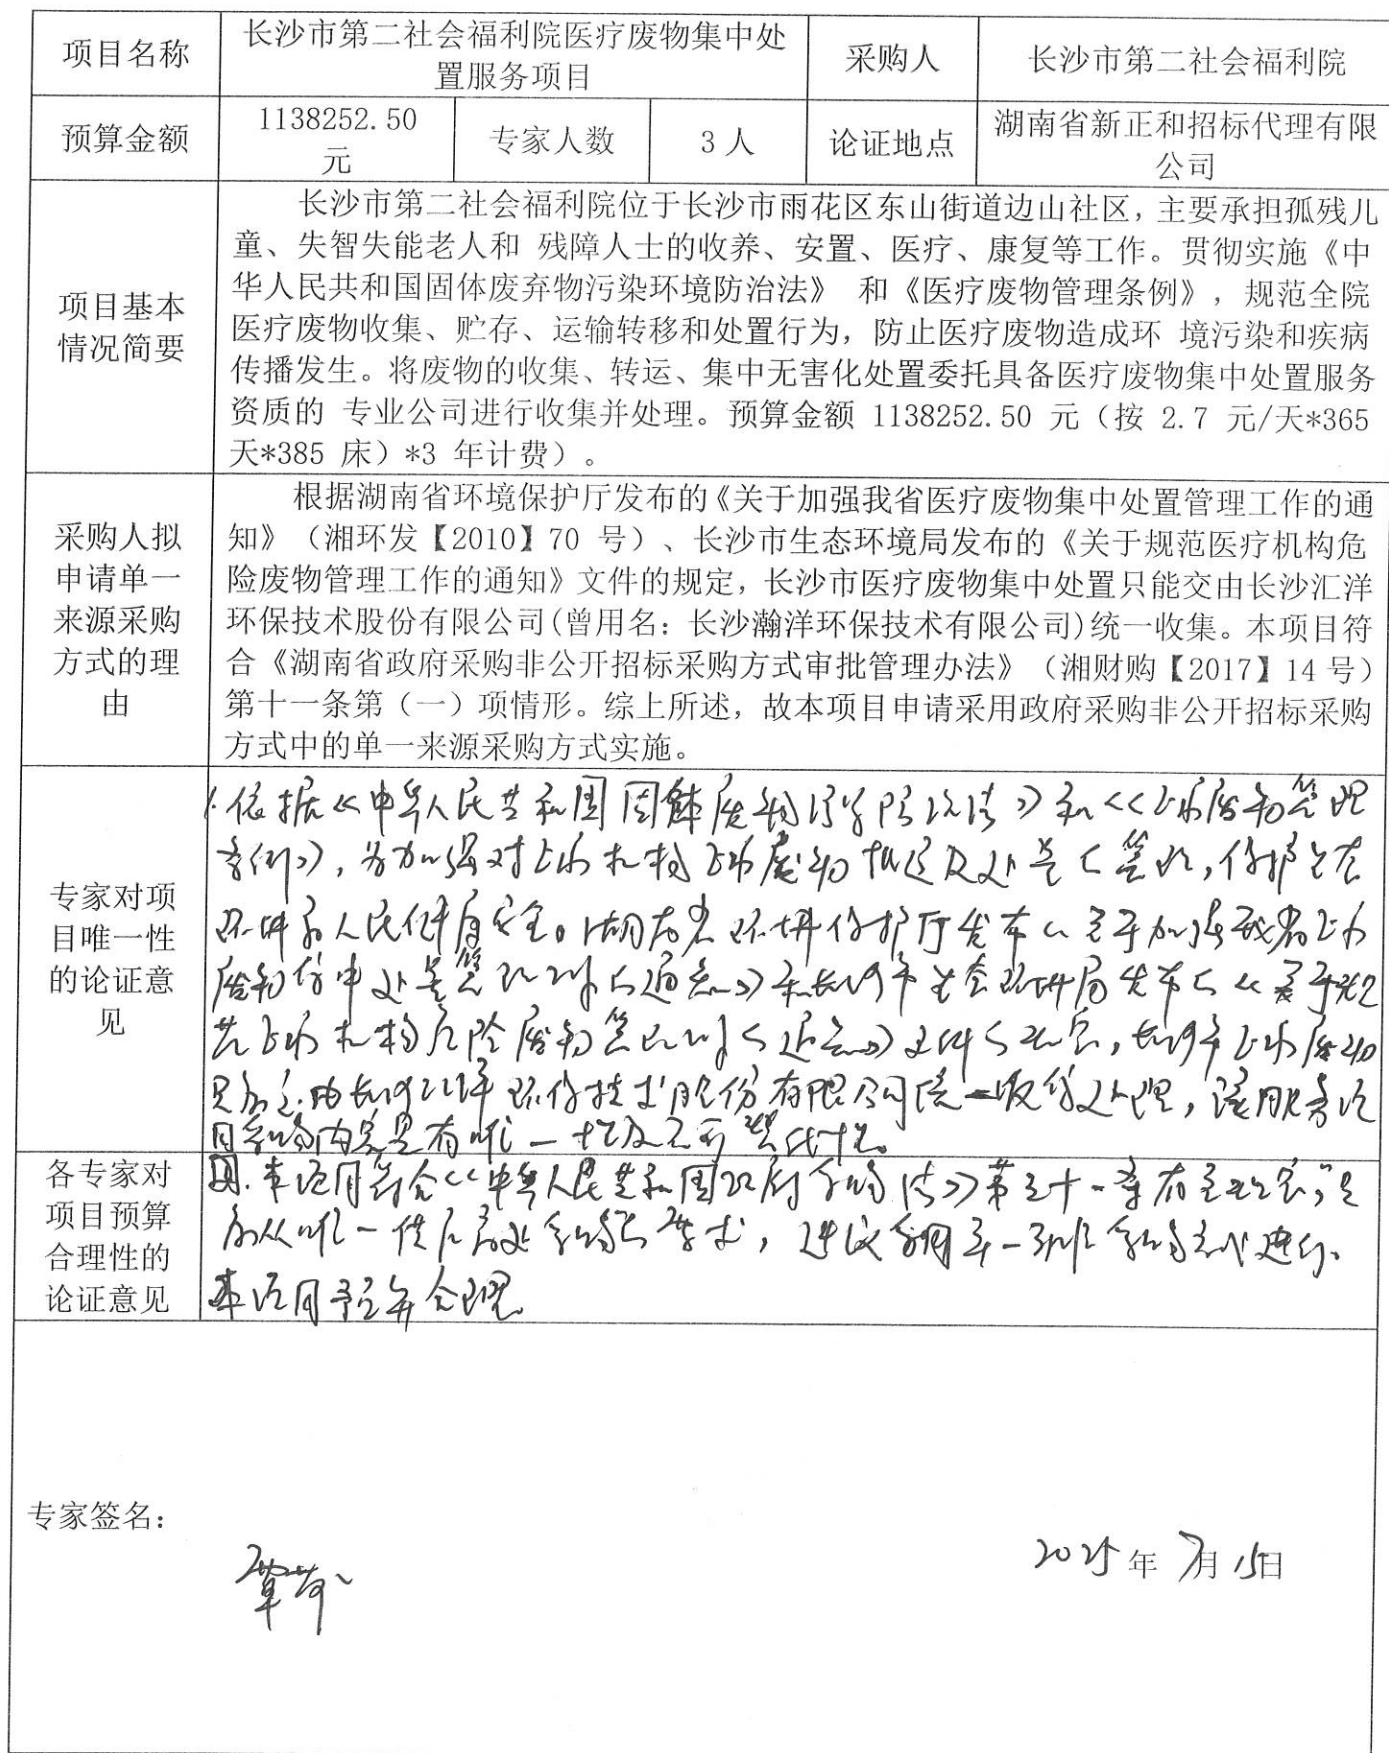 项目名称 长沙市第二社会福利院医疗废物集中处
置服务项目 采购人 长沙市第二社会福利院
预算金额 1138252.50
元 专家人数 3人 论证地点 湖南省新正和招标代理有限
公司
项目基本
情况简要
长沙市第二社会福利院位于长沙市雨花区东山街道边山社区，主要承担孤残儿
童、失智失能老人和 残障人士的收养、安置、医疗、康复等工作。贯彻实施《中
华人民共和国固体废弃物污染环境防治法》 和《医疗废物管理条例》，规范全院
医疗废物收集、贮存、运输转移和处置行为，防止医疗废物造成环 境污染和疾病
传播发生。将废物的收集、转运、集中无害化处置委托具备医疗废物集中处置服务
资质的 专业公司进行收集并处理。预算金额 1138252.50 元（按 2.7 元/天*365
天*385 床）*3 年计费）。
采购人拟
申请单一
来源采购
方式的理
由
根据湖南省环境保护厅发布的《关于加强我省医疗废物集中处置管理工作的通
知》（湘环发【2010】70 号）、长沙市生态环境局发布的《关于规范医疗机构危
险废物管理工作的通知》文件的规定，长沙市医疗废物集中处置只能交由长沙汇洋
环保技术股份有限公司(曾用名：长沙瀚洋环保技术有限公司)统一收集。本项目符
合《湖南省政府采购非公开招标采购方式审批管理办法》（湘财购【2017】14号）
第十一条第（一）项情形。综上所述，故本项目申请采用政府采购非公开招标采购
方式中的单一来源采购方式实施。
专家对项
目唯一性
的论证意
见
1.依据《中华人民共和国固体废物污染防治法》和《医疗废物管理
条例》，为加强对医疗机构医疗废物 及处置的管理，保护生态
环境和人民健康安全。湖南省环境保护厅发布《关于加强我省医疗
废物集中处置管理工作的通知》和长沙市生态环境局发布的《关于规
范医疗机构危险废物管理工作的通知》文件的规定，长沙市医疗废物
只能交由长沙汇洋环保技术股份有限公司统一收集处理，该服务项
目采购内容具有唯一性及不可替代性。
各专家对
项目预算
合理性的
论证意见
本项目符合《中华人民共和国政府采购法》第三十一条有关规定，"只
能从唯一供应商处采购"的要求，建议采用单一来源采购方式进行。
本项目预算合理。
专家签名：
2025年7月15日